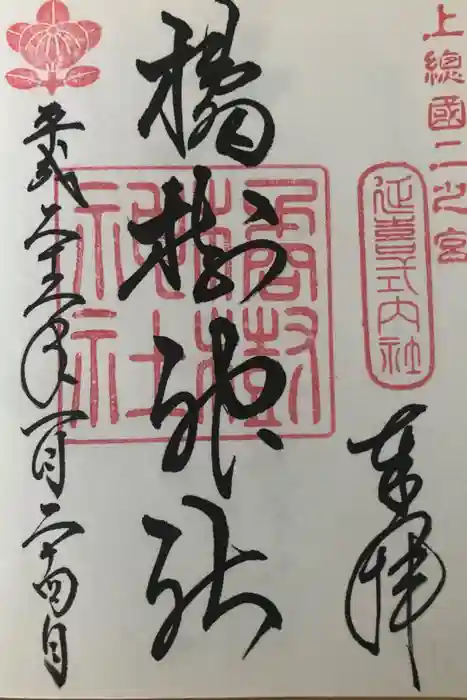 上總國二之宮
延喜式内社
奉拝
橘樹神社
橘樹神社
平成二十六年一月二十四日